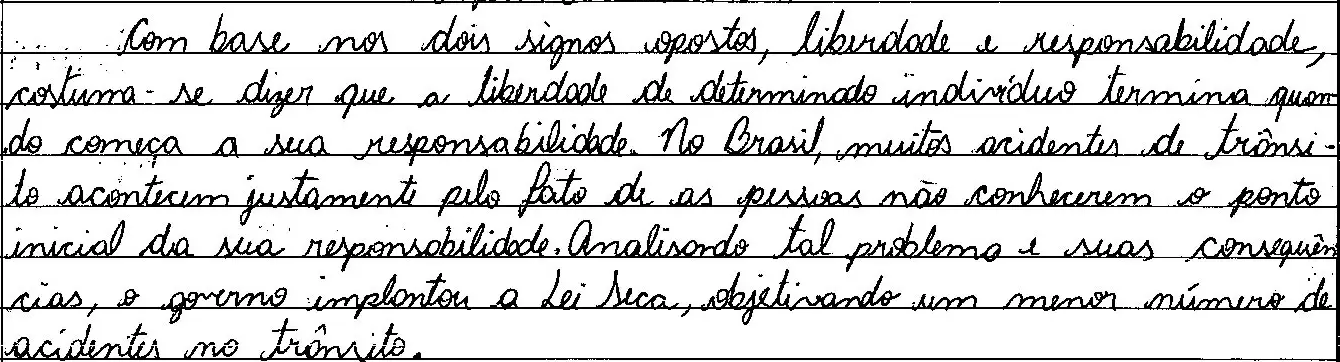 Com base nos dois signos opostos, liberdade e responsabilidade,
costuma-se dizer que a liberdade de determinado indivíduo termina quan-
do começa a sua responsabilidade. No Brasil, muitos acidentes de trânsi-
to acontecem justamente pelo fato de as pessoas não conhecerem o ponto
inicial da sua responsabilidade. Analisando tal problema e suas consequên
cias, o governo implantou a Lei Seca, objetivando um menor número de
acidentes no trânsito.